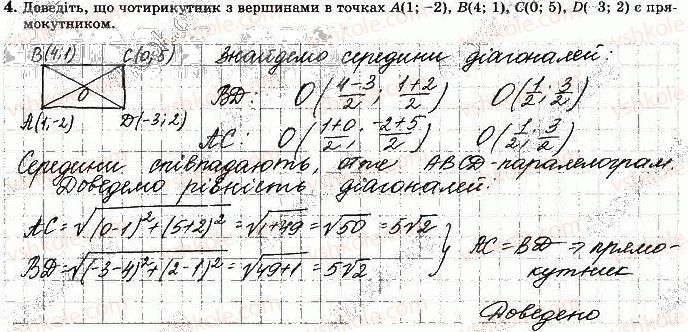 4. Доведіть, що чотирикутник з вершинами в точках A(1; -2), B(4; 1), C(0; 5), D(-3; 2) є пря-
мокутником.
B(4;1) C(0;5) Знайдемо середини діагоналей:
BD: O((4-3)/2; (1+2)/2) O(1/2; 3/2)
O
A(1;-2) D(-3;2)
AC: O((1+0)/2; (-2+5)/2) O(1/2; 3/2)
Середини співпадають, отже ABCD-паралелограм.
Доведемо рівність діагоналей.
AC=√((0-1)²+(5+2)²)=√(1+49)=√50=5√2
BD=√((-3-4)²+(2-1)²)=√(49+1)=5√2
AC=BD ⇒ прямо-
кутник
Доведено